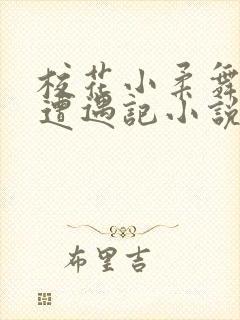 校花小柔舞
遭遇記小說
布里吉